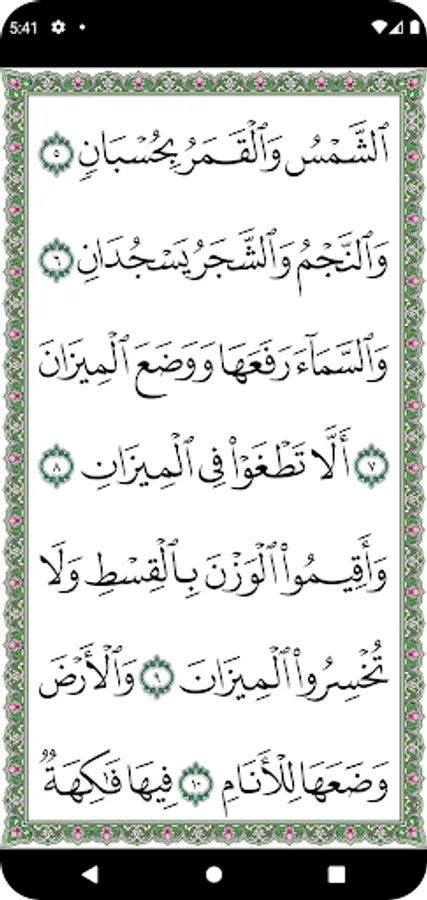 5:41
ٱلشَّمْسُ وَٱلْقَمَرُ بِحُسْبَانٍ ٥
وَٱلنَّجْمُ وَٱلشَّجَرُ يَسْجُدَانِ ٦
وَٱلسَّمَآءَ رَفَعَهَا وَوَضَعَ ٱلْمِيزَانَ
٧ أَلَّا تَطْغَوْا۟ فِى ٱلْمِيزَانِ ٨
وَأَقِيمُوا۟ ٱلْوَزْنَ بِٱلْقِسْطِ وَلَا
تُخْسِرُوا۟ ٱلْمِيزَانَ ٩ وَٱلْأَرْضَ
وَضَعَهَا لِلْأَنَامِ ١٠ فِيهَا فَٰكِهَةٌ